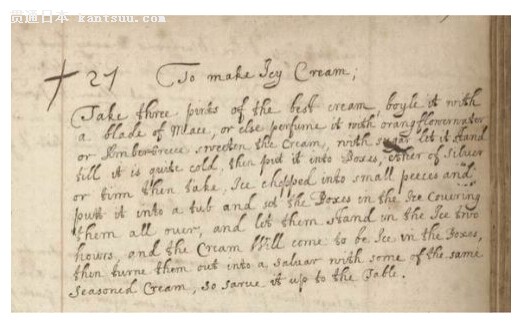 贯通日本 kantsuu.com
27 To make Icy Cream;
Take three pints of the best cream, boyle it with
a blade of Mace, or else perfume it with orang flower water
or Ambergreece, sweeten the Cream, with sugar let it stand
till it is quite cold, then put it into Boxes, ether of Siluer
or tinn then take, Ice chopped into small peeces and
putt it into a tub and set the Boxes in the Ice couering
them all ouer, and let them stand in the Ice two
hours, and the Cream Will come to be Ice in the Boxes,
then turne them out into a Saluar with some of the same
Seasoned Cream, so sarue it up to the Table.